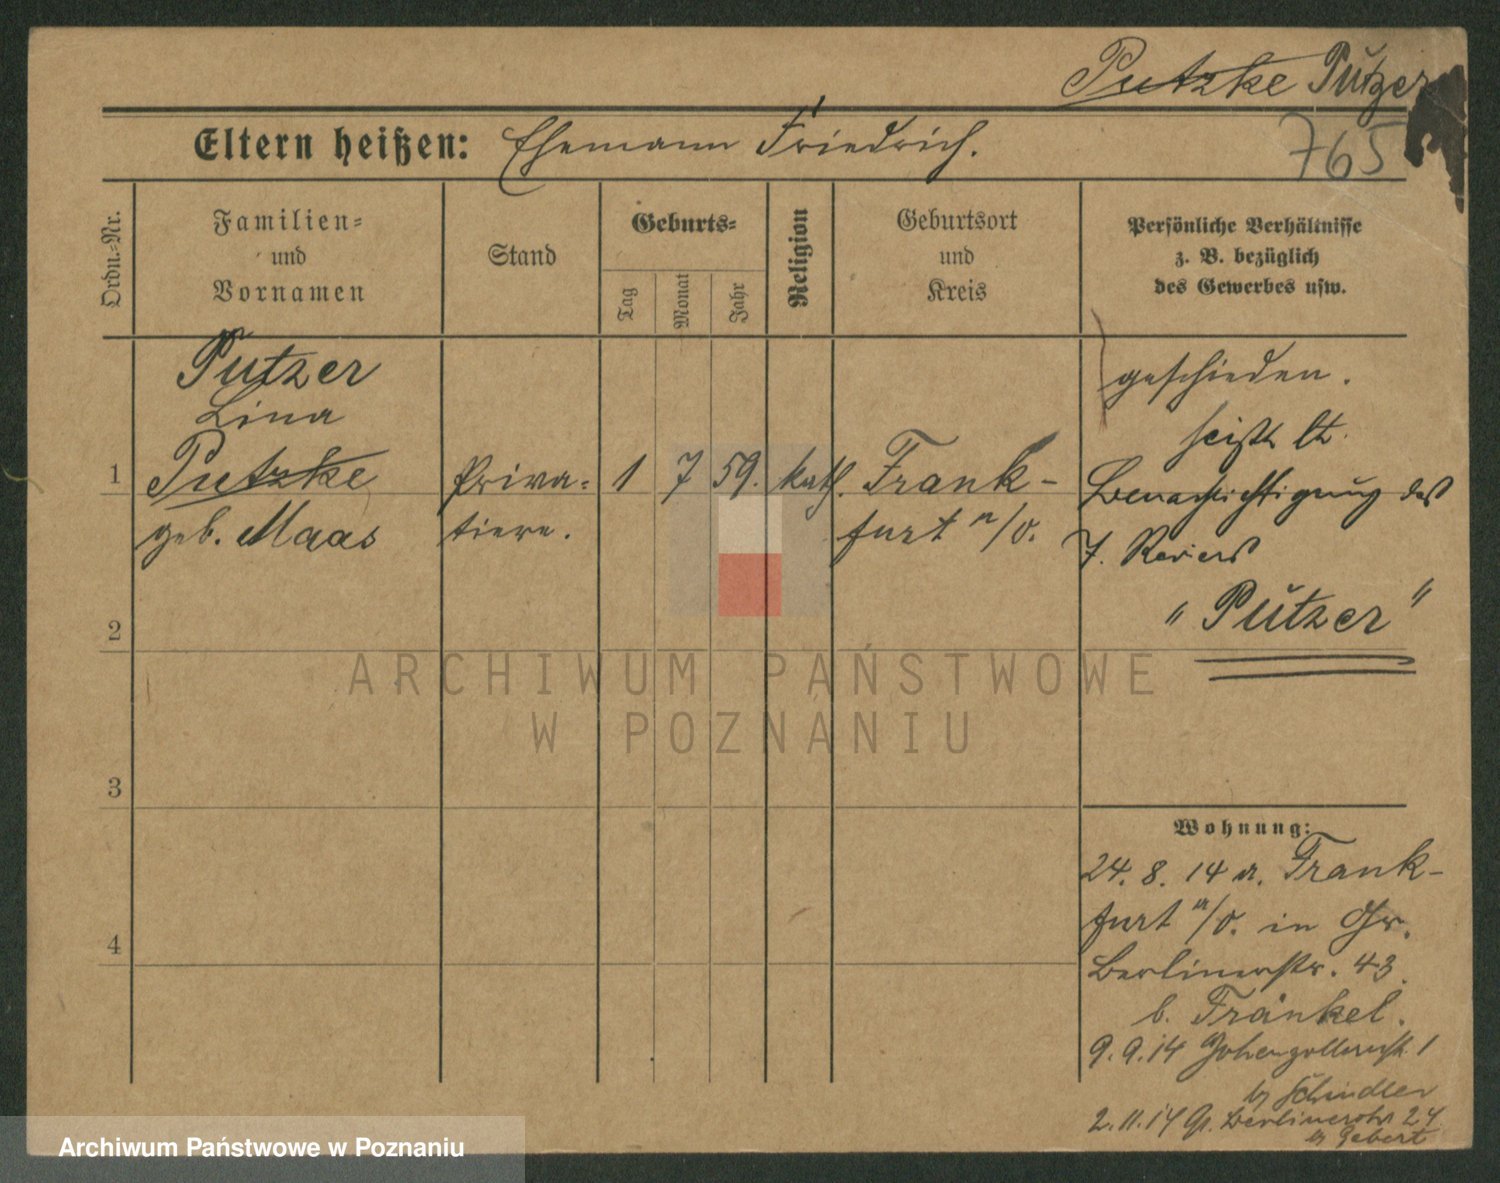 Putzke Pützer
765
Eltern heißen: Ehemann Friedrich.
Ordn.-Nr.
Familien-
und
Vornamen
Stand
Geburts-
Tag
Monat
Jahr
Religion
Geburtsort
und
Kreis
Persönliche Verhältnisse
z. B. bezüglich
des Gewerbes usw.
Putzer
Lina
1 Putzke Priva- 1 7 59. kath. Frank-
geb. Maas tiere. furt a/O.
geschieden.
heißt lt.
Benachrichtigung des
7. Reviers
"Pützer"
2
3
4
ARCHIWUM PAŃSTWOWE
W POZNANIU
Wohnung:
24. 8. 14 a. Frank-
furt a/O. in Gr.
Berlinerstr. 43
b. Fränkel.
9. 9. 14 Hohenzollernstr. 1
b/ Schindler
2. 11. 14 Gr. Berlinerstr 24
b/ Gebert
Archiwum Państwowe w Poznaniu